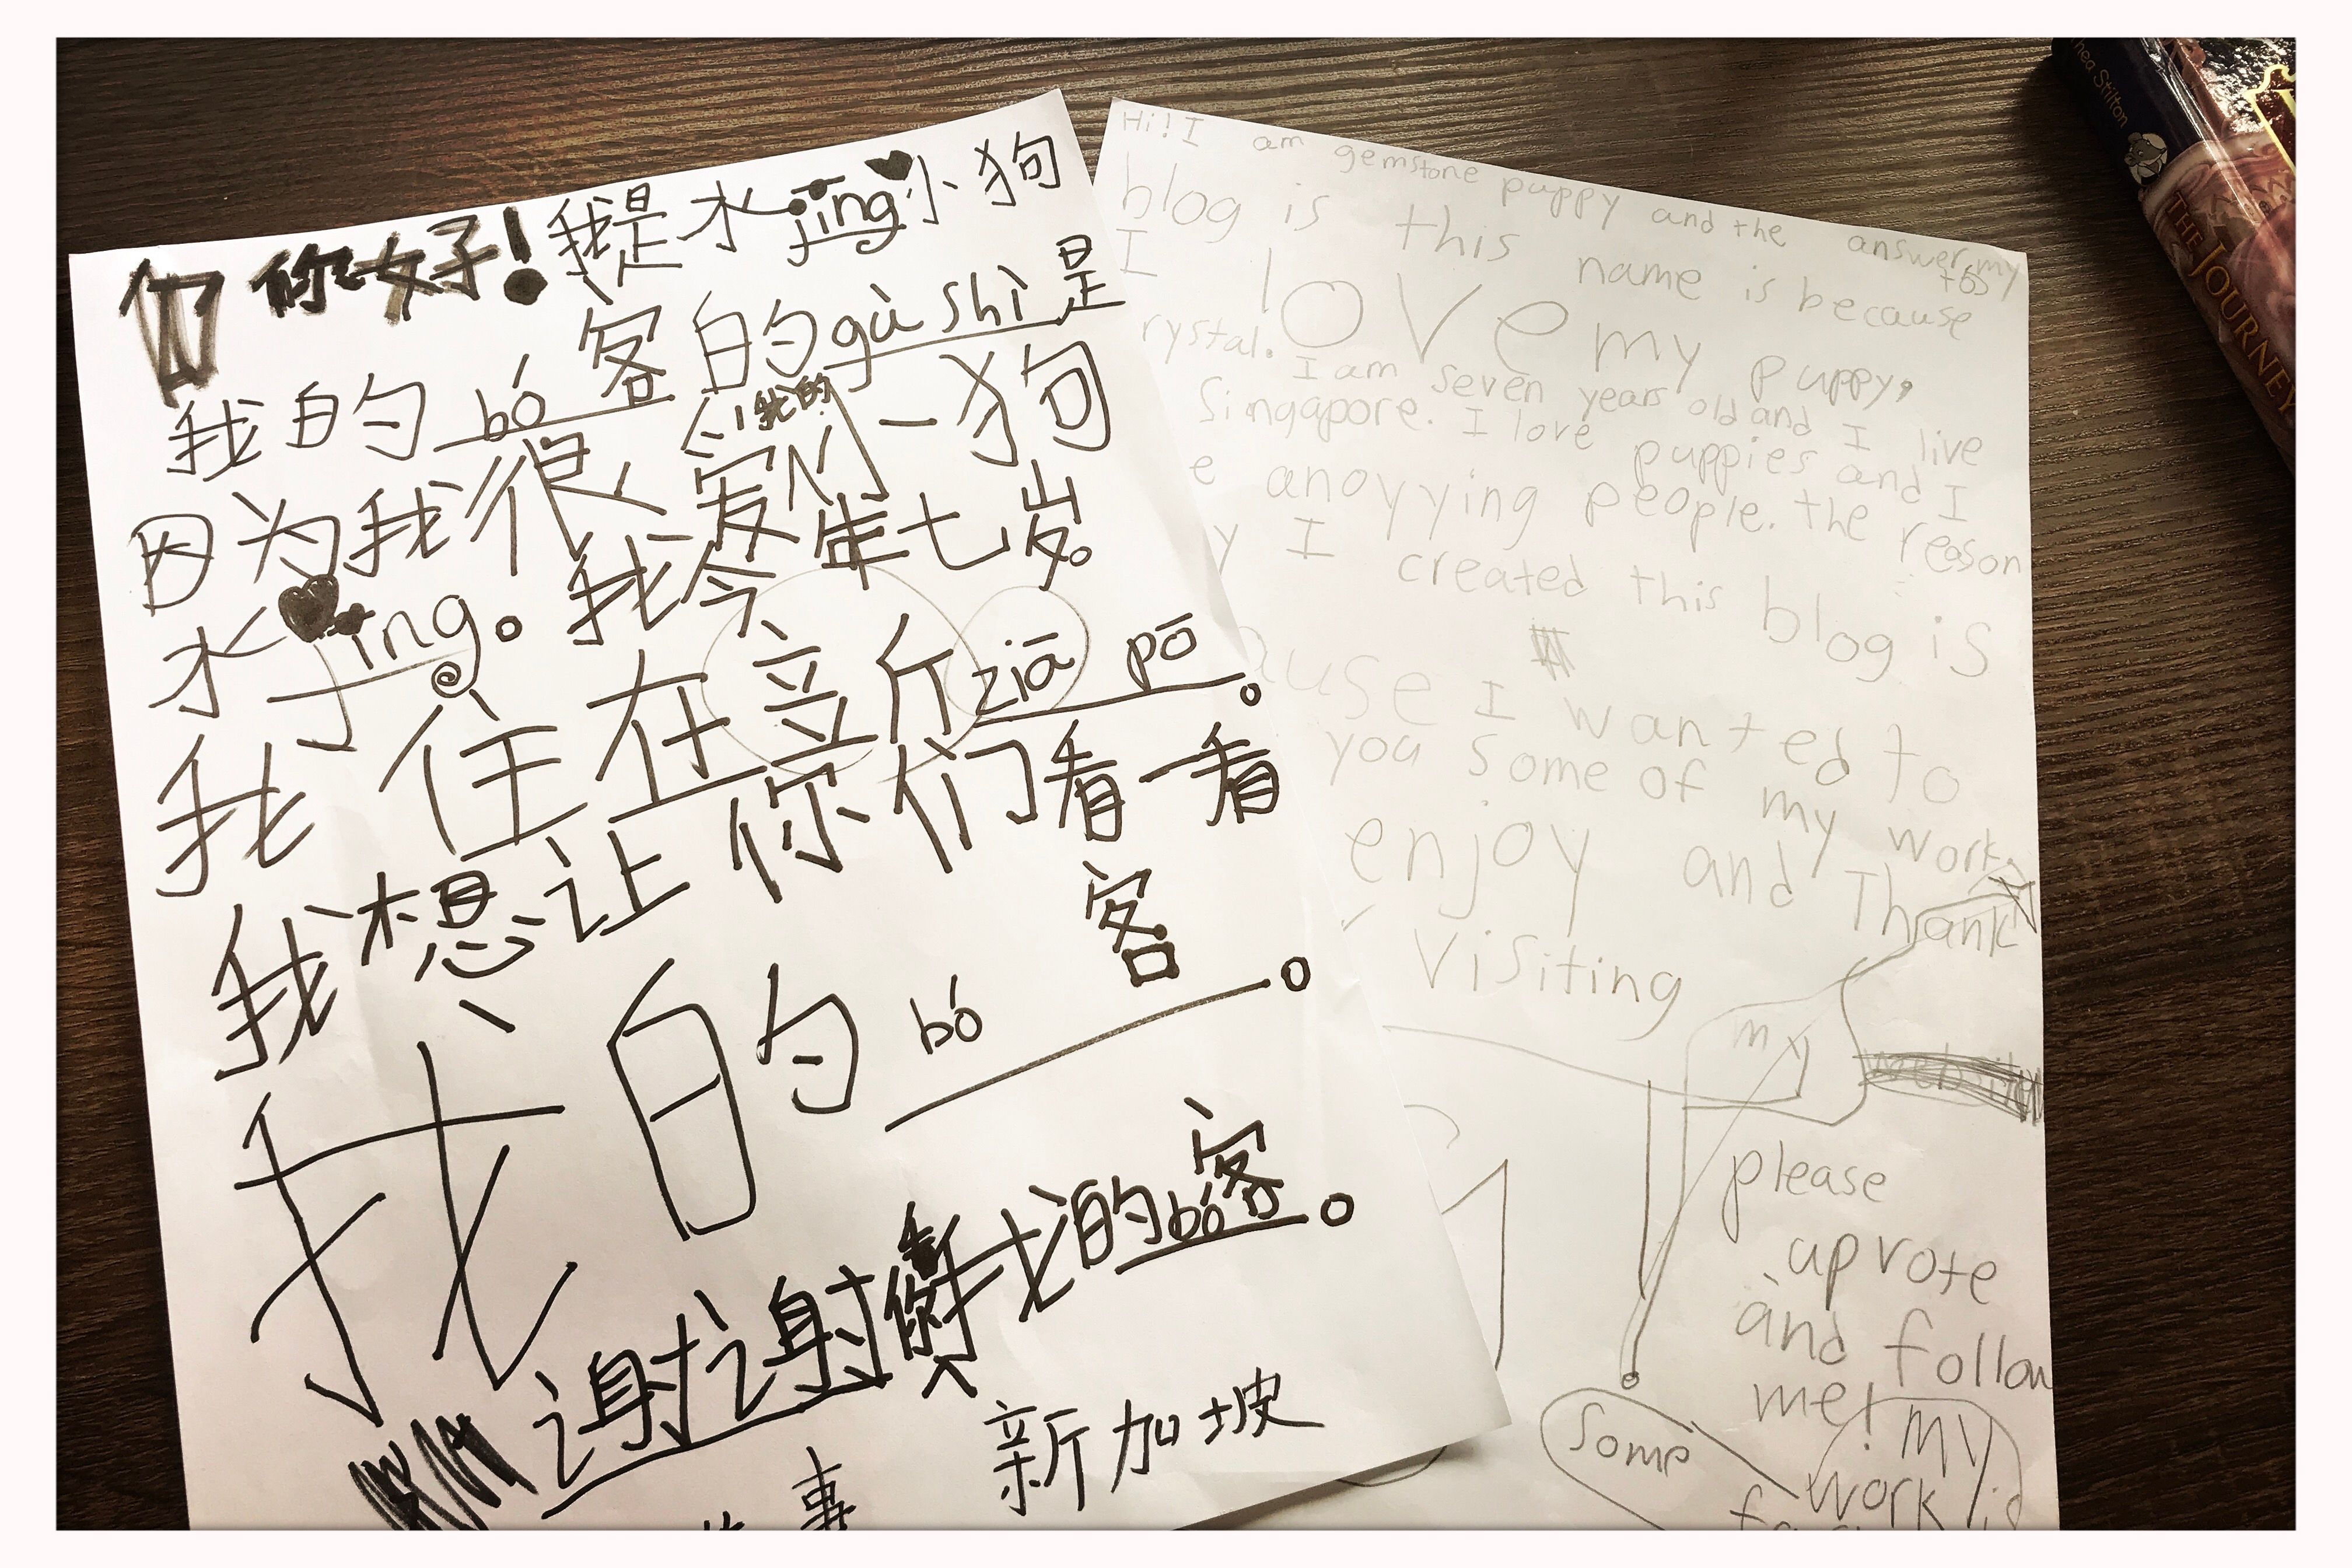 你好！我是水jīng小狗
我的bó客的gù shì是
因为我很爱我的小狗
水jīng。我今年七岁。
我住在新ziā pō。
我想让你们看一看
我的bó客。
谢谢你看我的bó客。
新加坡
事
Hi! I am gemstone puppy and the answer my
blog is this name is because
I love my puppy,
rystal. I am seven years old and I live
Singapore. I love puppies and I
e anoyying people. the reason
y I created this blog is
ause I wanted to
you some of my work.
enjoy and Thank
Visiting
my
website
please
upvote
and follow
me! my
Some
work is
Thea Stilton
THE JOURNEY